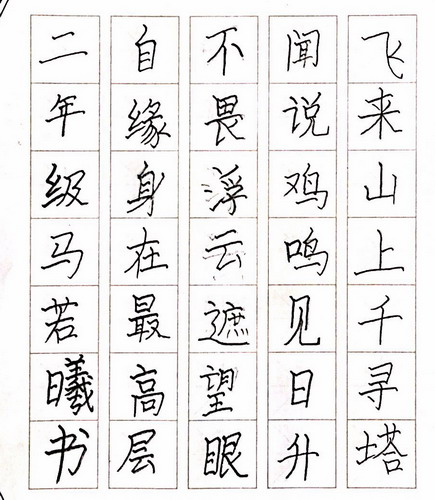 飞来山上千寻塔
闻说鸡鸣见日升
不畏浮云遮望眼
自缘身在最高层
二年级马若曦书